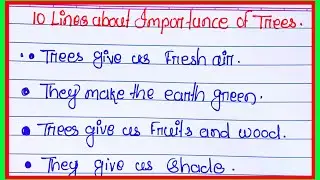 10 Lines about Importance of Trees.
• Trees give us Fresh air.
• They make the earth green.
• Trees give us Fruits and wood.
• They give us Shade.